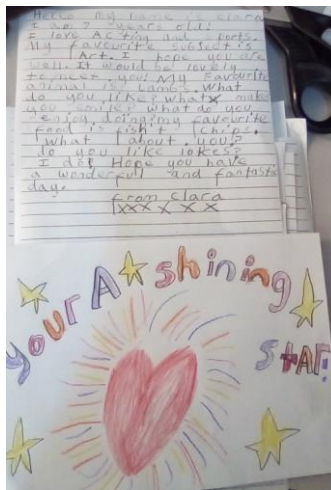 Hello my name is clara
I am 7 years old!
I love Acting and sports.
My favourite subject is
Art. I hope you are
well. It would be lovely
to meet you! My Favourite
animal is Lambs. What
do you like? what makes
you smile? what do you
enjoy doing? my favourite
food is fish + chips.
What about you?
do you like jokes?
I do! Hope you have
a wonderful and fantastic
day.
from clara
xxx x x x
your A shining
stAr!